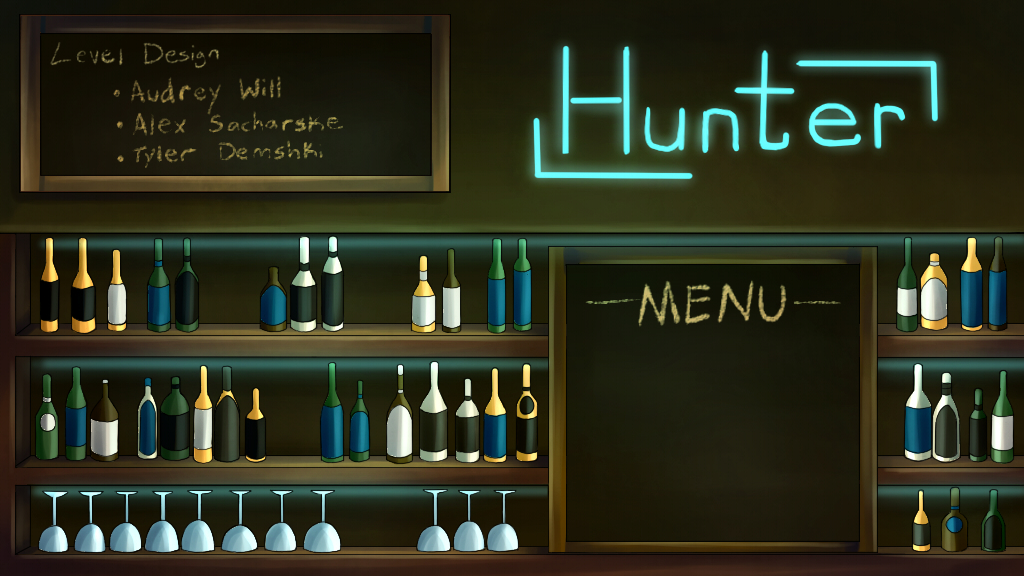 Level Design
• Audrey Will
• Alex Sacharske
• Tyler Demshki
Hunter
MENU